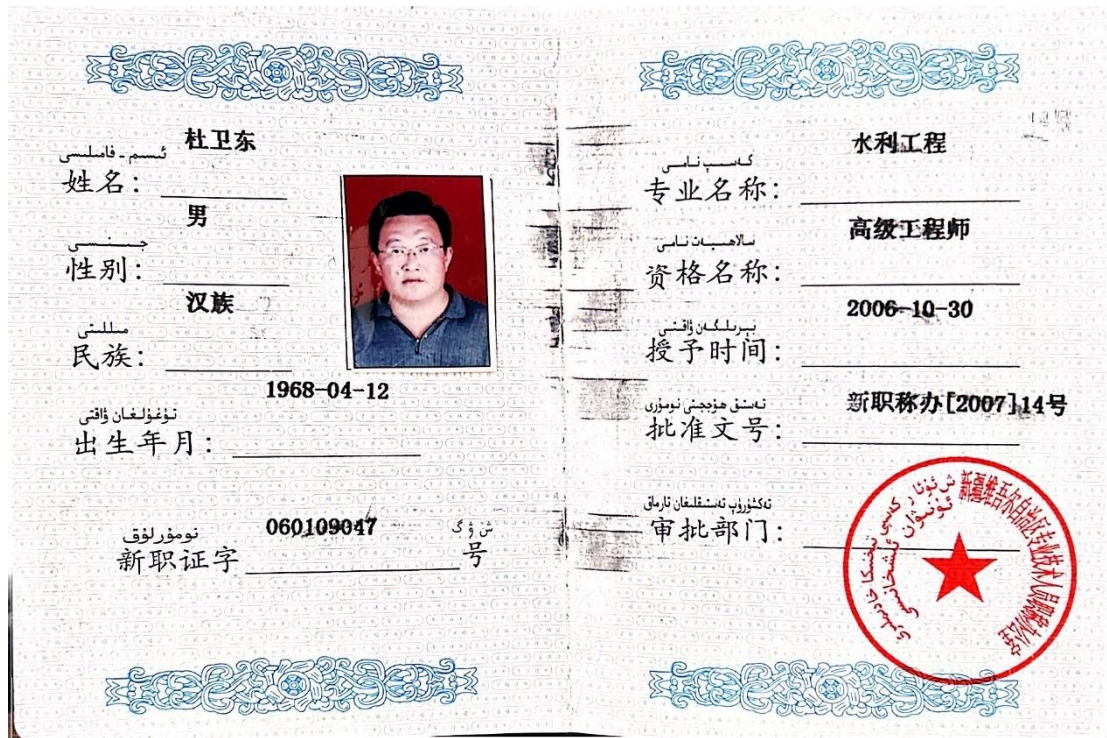 杜卫东
ئىسىم - فامىلىسى
姓名：
男
جىنسى
性别：
汉族
مىللىتى
民族：
1968-04-12
تۇغۇلغان ۋاقتى
出生年月：
نومۇرلۇق 060109047 ش ۋ گ
新职证字 号
水利工程
كەسىپ نامى
专业名称：
高级工程师
سالاھىيەت نامى
资格名称：
2006-10-30
بېرىلگەن ۋاقتى
授予时间：
新职称办[2007]14号
تەستىق ھۆججىتى نومۇرى
批准文号：
تەكشۈرۈپ تەستىقلىغان تارماق
审批部门：
新疆维吾尔自治区专业技术人员职称办公室